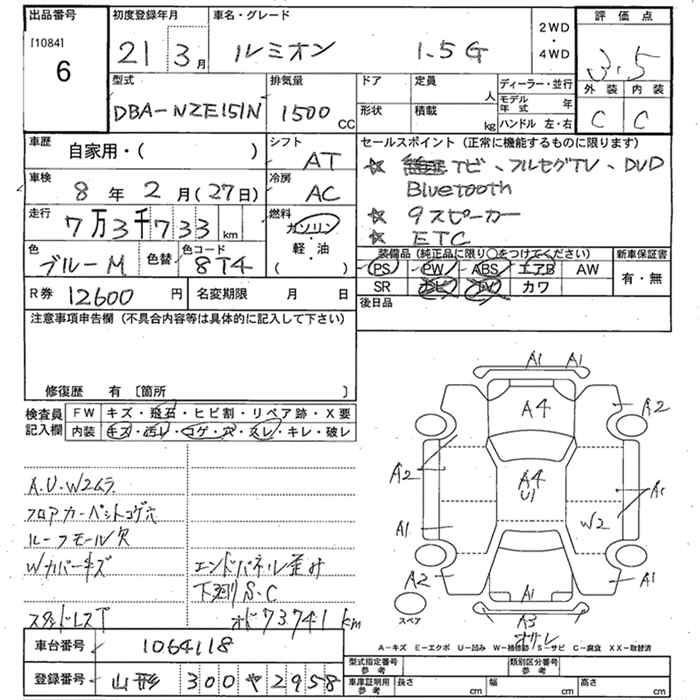 出品番号
[1084]
6
初度登録年月
21 3月
車名・グレード
ルミオン 1.5G
2WD
・
4WD
評価点
3.5
外装 内装
C C
型式
DBA-NZE151N
排気量
1500 CC
ドア
定員 人
形状
積載 kg
ディーラー・並行
モデル年式 年
ハンドル 左・右
車歴
自家用・( )
シフト
AT
車検
8年2月(27日)
冷房
AC
走行
7万3千733km
燃料
ガソリン
軽・油
( )
色
ブルーM
色替
色コード
8T4
R券 12600円
名変期限 月 日
セールスポイント(正常に機能するものに限ります)
☆ Tビ、フルセグTV、DVD
Bluetooth
☆ 9スピーカー
☆ ETC
装備品(純正品に限り○をつけてください)
新車保証書
PS PW ABS エアB AW
SR ナビ TV カワ
有・無
後日品
注意事項申告欄(不具合内容等は具体的に記入して下さい)
修復歴 有 [箇所 ]
検査員記入欄
FW キズ・飛石・ヒビ割・リペア跡・X要
内装 キズ・汚レ・コゲ・穴・スレ・キレ・破レ
A.U.W2ムラ
フロアカーペットコゲ穴
ルーフモール欠
Wカバーキズ
エンドパネル歪み
下廻りS.C
スタッドレスT
オド73741km
A1 A1
A4
A2
A2
A4
U1
A1
A1
W2
A2
A1
A1
A3
スペア
A−キズ E−エクボ U−凹み W−補修跡 S−サビ C−腐食 XX−取替済
車台番号 1064118
登録番号 山形 300 や 2958
型式指定番号
参考
類別区分番号
参考
車庫証明用
参考
長さ cm
幅 cm
高さ cm